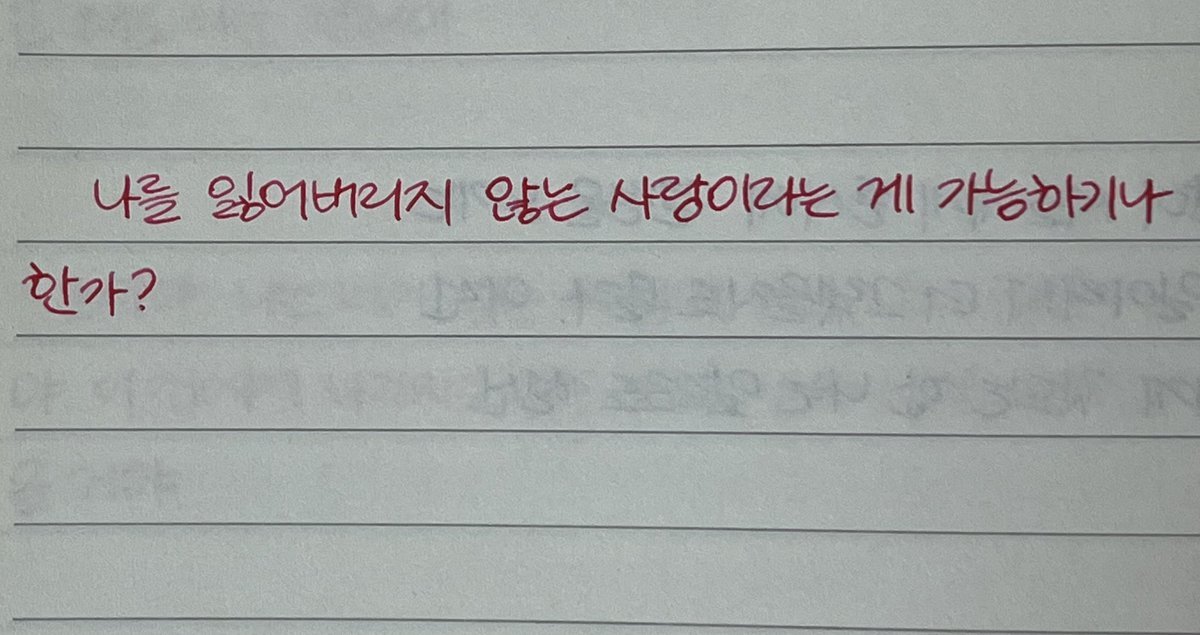 나를 잃어버리지 않는 사랑이라는 게 가능하기나
한가?